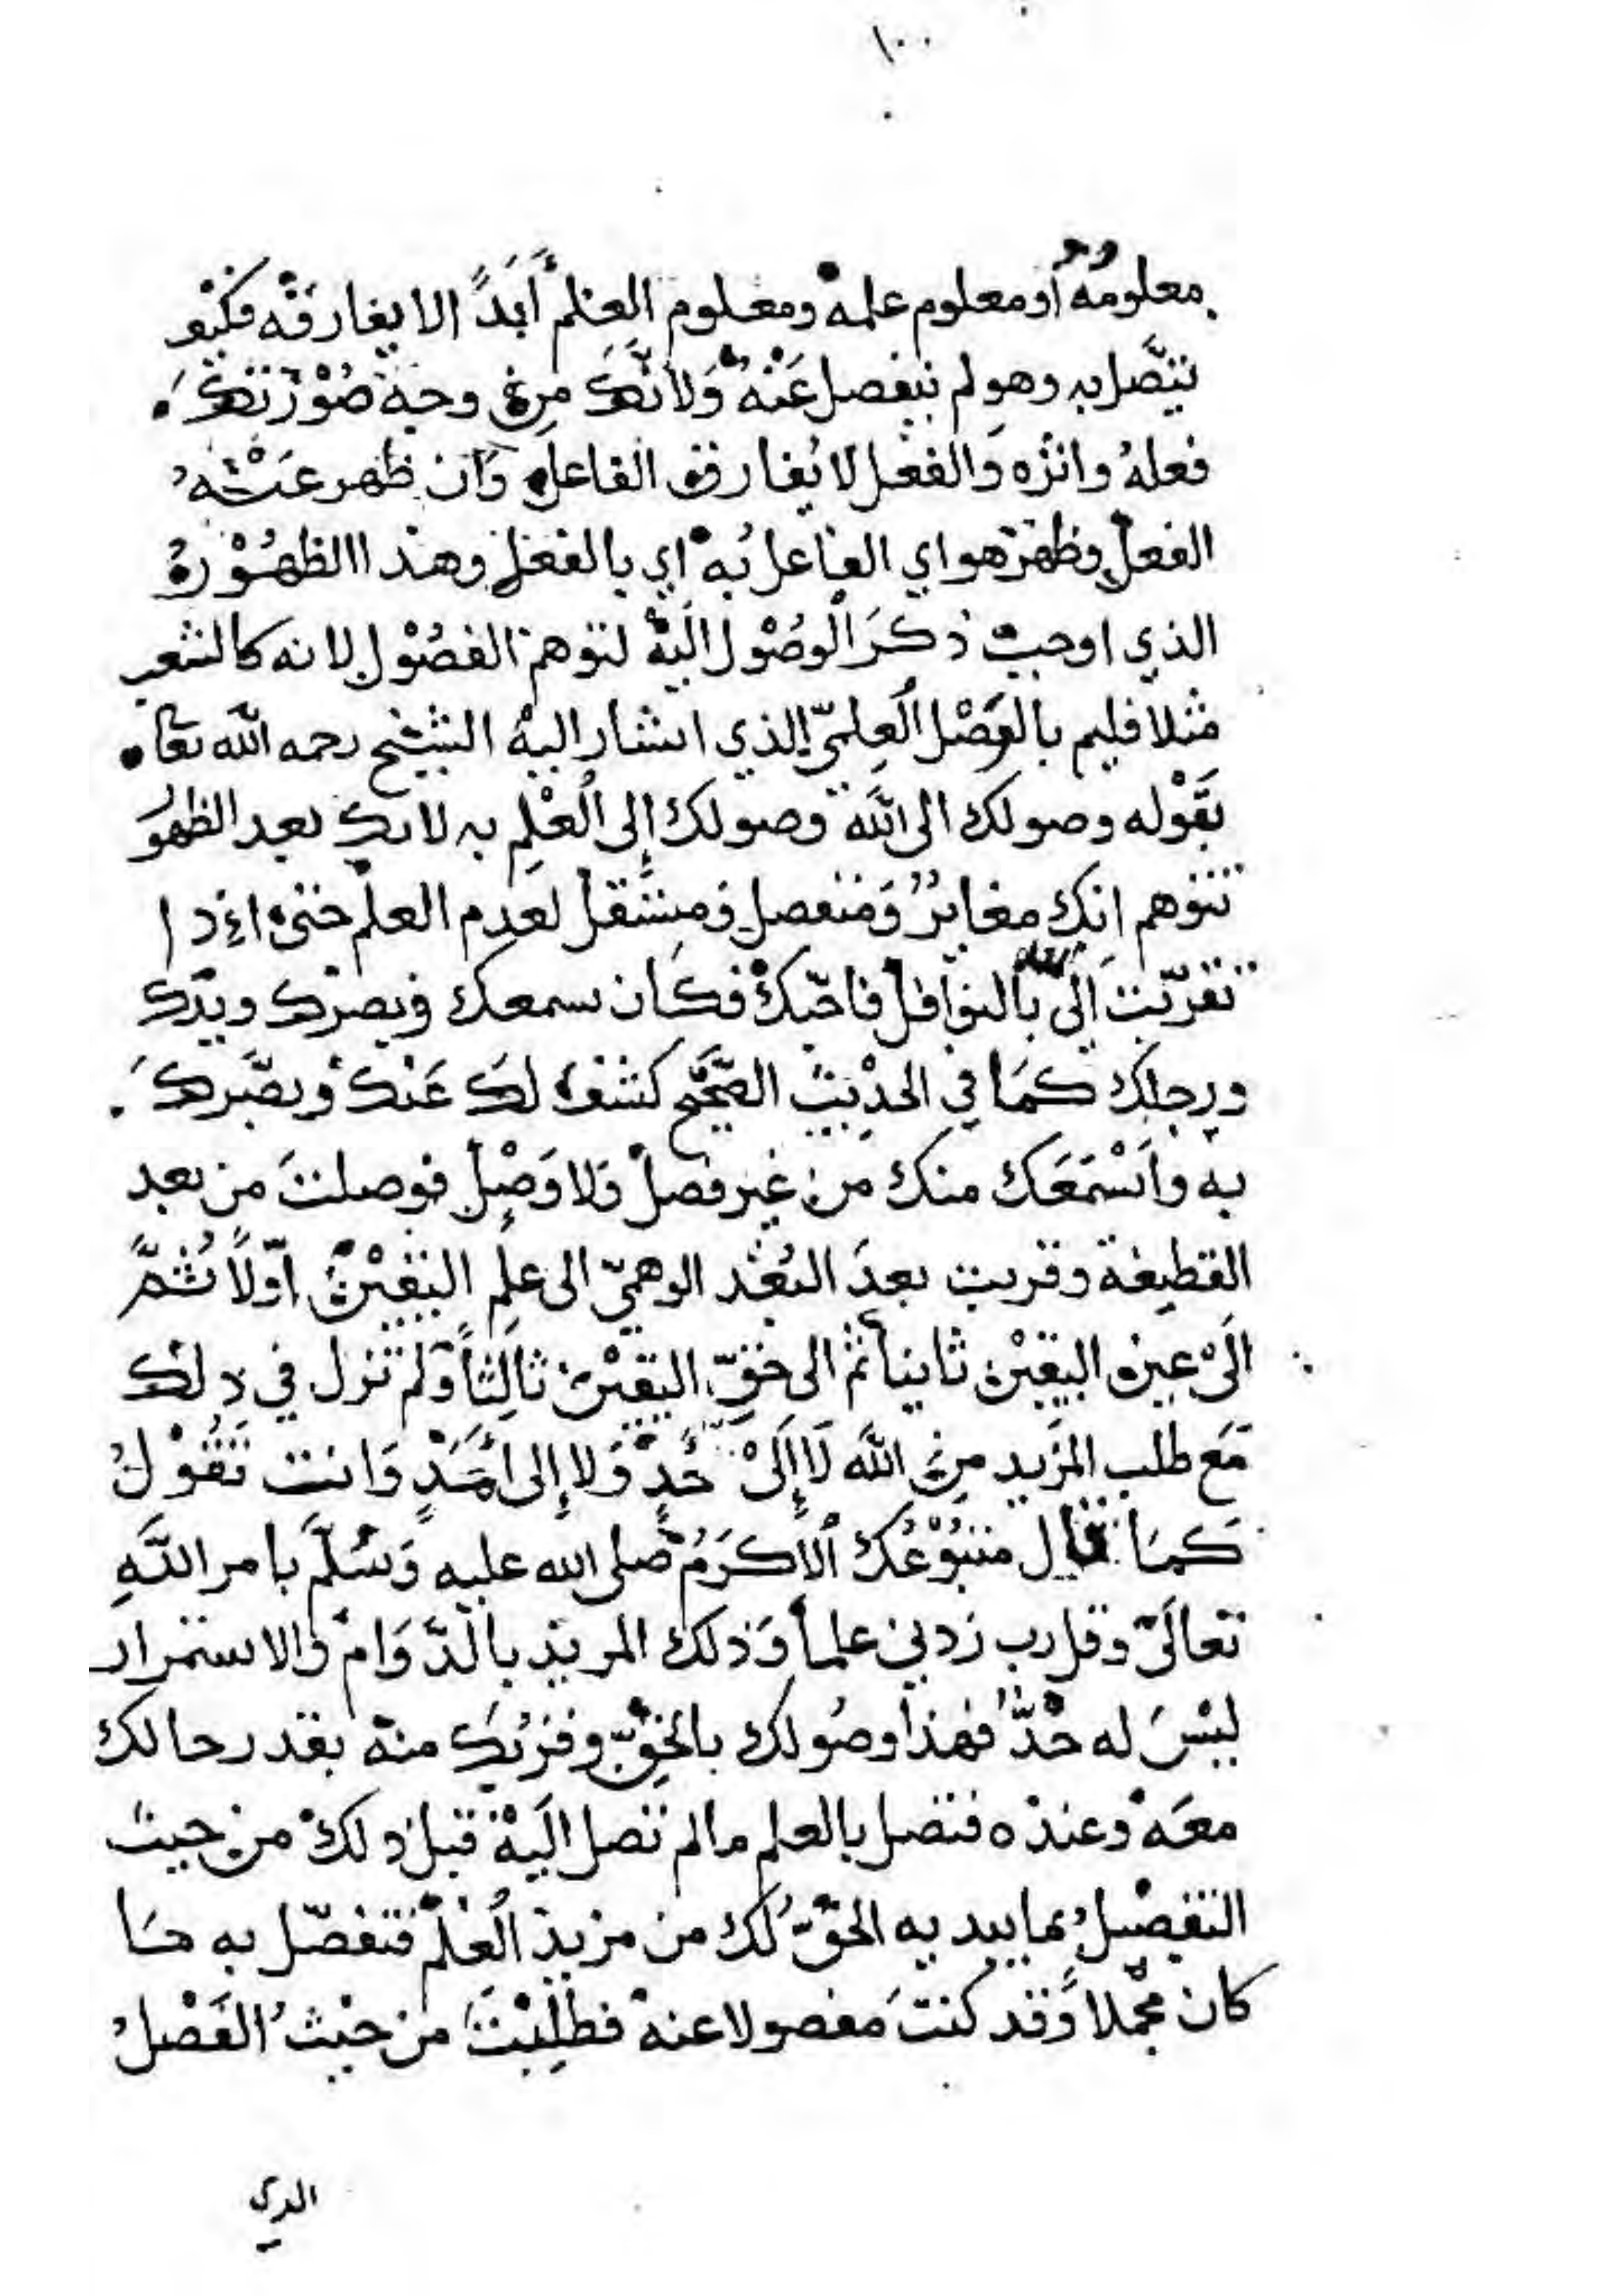 ١٠٠
معلومه أو معلوم علمه ومعلوم العلم أبدا لا يفارقه فكيف
يتصل به وهو لم ينفصل عنه ولأنك من وجه صورتك
فعله واثره والفعل لا يفارق الفاعل وان ظهر عنه
الفعل وظهر هو اي الفاعل به اي بالفعل وهذا الظهور
الذي اوجب ذكر الوصول اليه لتوهم الفصول لانه كالشعر
مثلا بالفصل العلمي الذي اشار اليه الشيخ رحمه الله تعا
بقوله وصولك الى الله وصولك إلى العلم به لانك بعد الظهو
تتوهم انك مغاير ومنفصل ومستقل لعدم العلم حتى اذا
تقربت إلى الله بالنوافل فاحبك فكان سمعك وبصرك ويدك
ورجلك كما في الحديث الصحيح كشف لك عنك وبصرك
به واسمعك منك من غير فصل ولا وصل فوصلت من بعد
القطيعة وقربت بعد البعد الوهمي الى علم اليقين اولا ثم
الى عين اليقين ثانيا ثم الى حق اليقين ثالثا ولم تزل في ذلك
مع طلب المزيد من الله لا إلى حد ولا إلى أمد وانت تقول
كما قال متبوعك الأكرم صلى الله عليه وسلم بامر الله
تعالى وقل رب زدني علما وذلك المزيد بالدوام والاستمرار
ليس له حد فهذا وصولك بالحق وقربك منه بقدر حالك
معه وعنده فتصل بالعلم مالم تصل اليه قبل ذلك من حيث
التفصيل بما يبديه الحق لك من مزيد العلم فتفصل به ما
كان مجملا وقد كنت مفصولا عنه فطلبت من حيث الفصل
الذي